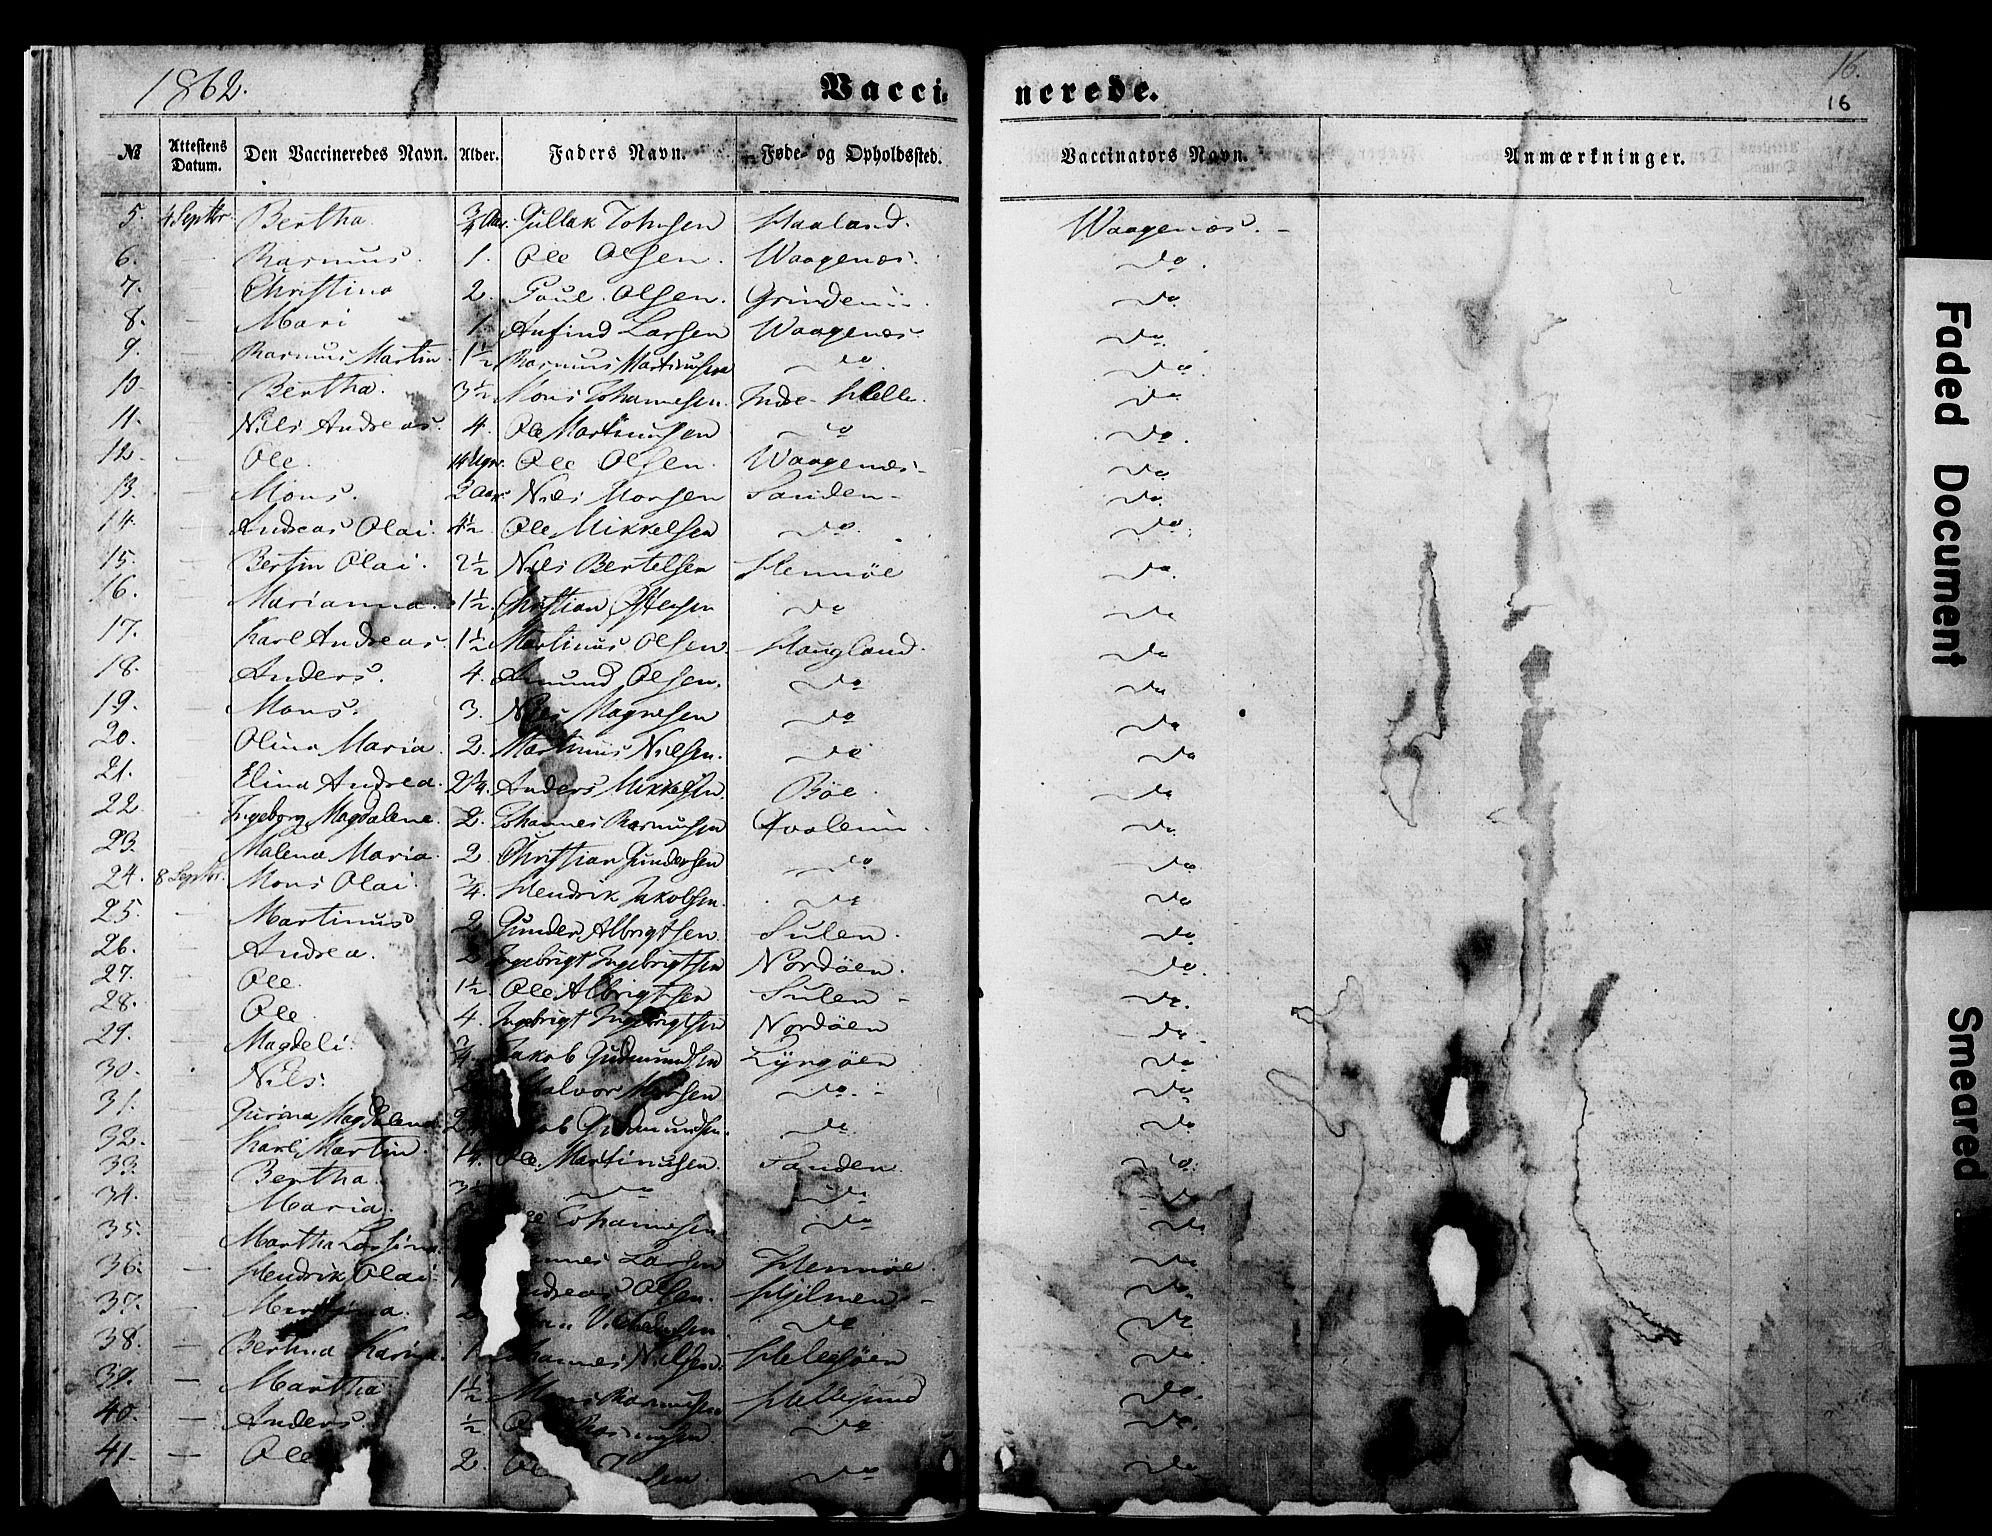 1862.
Vacci-
nerede.
16.
16
№ Attestens Datum. Den Vaccineredes Navn. Alder. Faders Navn. Føde- og Opholdssted. Vaccinators Navn. Anmærkninger.
5. 4 Septbr. Bertha. 3/4 Aar. Gullak Johnsen Haaland. Waagenæs. -
6. — Rasmus. 1. Ole Olsen. Waagenæs. do.
7. — Christina 2. Poul Olsen. do
8. — Mari 1. Anfind Larsen Waagenæs. do
9. — Rasmus Martin. 1½ Rasmus Martinusen do. do.
10. — Bertha. 3½ Mons Johannesen. Indre Helle. do
11. — Nils Andreas. 4. Ole Martinusen do do.
12. — Ole. Ole Olsen. Waagenæs- do
13. — Mons. Nils Monsen Sanden- do.
14. — Andreas Olai. 4½ Ole Mikkelsen do. do.
15. — Bertin Olai. 2½ Nils Bertelsen Hennøe do.
16. — Marianna. 1½. Christian do do
17. — Karl Andreas. 1½ Martinus Olsen. Haugland. do
18. — Anders. 4. Amund Olsen. do do
19. — Mons. 3. Nils Magnesen do do
20. — Olina Maria. 2. Martinus Nilsen. do do
21. — Elina Andrea. Anders Mikkelsen. Böe. do
22. — Ingeborg Magdalene. 2. Johannes Rasmusen do.
23. — Malena Maria. 2. Christian Gundersen do do
24. 8 Septbr. Mons Olai. 3/4. Hendrik Jakobsen. do do
25. — Martinus 2 Gunder Albrigtsen. Sulen. do
26. — Andrea. 2 Ingebrigt Ingebrigtsen Nordöen. do.
27. — Ole. 1½. Ole Albrigtsen Sulen - do.
28. — Ole. 4. Ingebrigt Ingebrigtsen Nordöen do.
29. — Magdeli. 3/4. Jakob Gudmundsen Lyngöen do
30. — Nils. Halvor do. - do
31. — Gurina Magdalena. Gudmundsen. do do
32. — Karl Martin. Ole Martinusen. Sanden. do.
33. — Bertha. 3½ do do do
34. — Maria. Johannesen do do
35. — Martha Larsen Hennøe. do
36. — Hendrik Olai. Olsen. Hjelmen - do.
37. — do do
38. — Bertina Karina. 1. Johannes Nilsen. do
39. — Martha 1½. Mons Rasmusen Hellesund do.
40. — Anders. ½ Rasmusen do do
41. — Ole 2. do do
Faded Document
Smeared